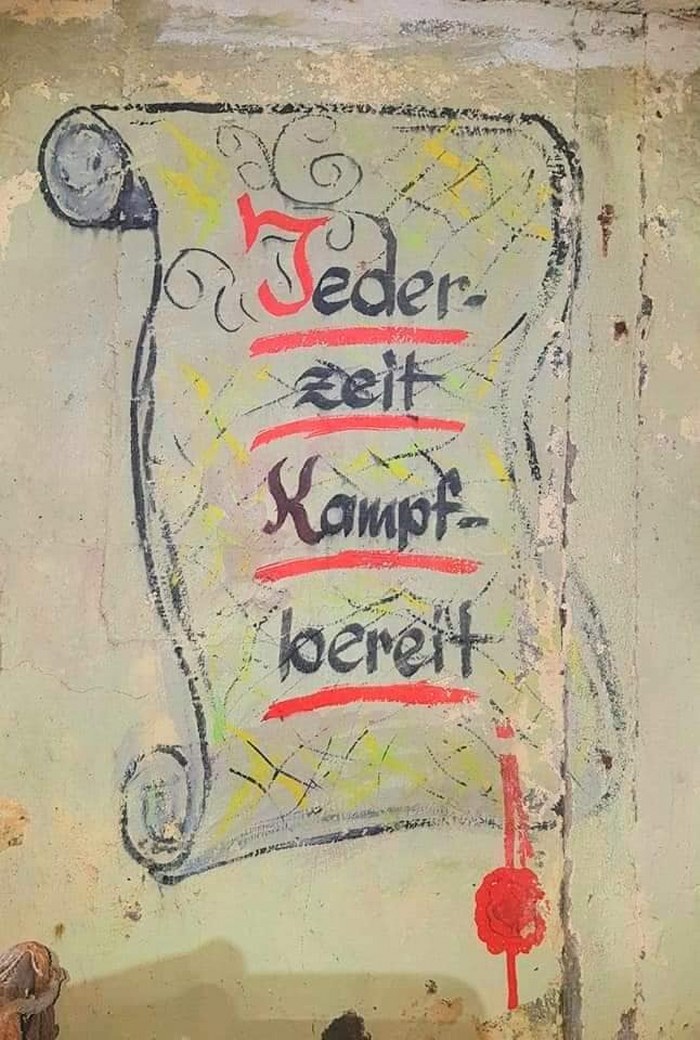 Jeder-
zeit
Kampf-
bereit